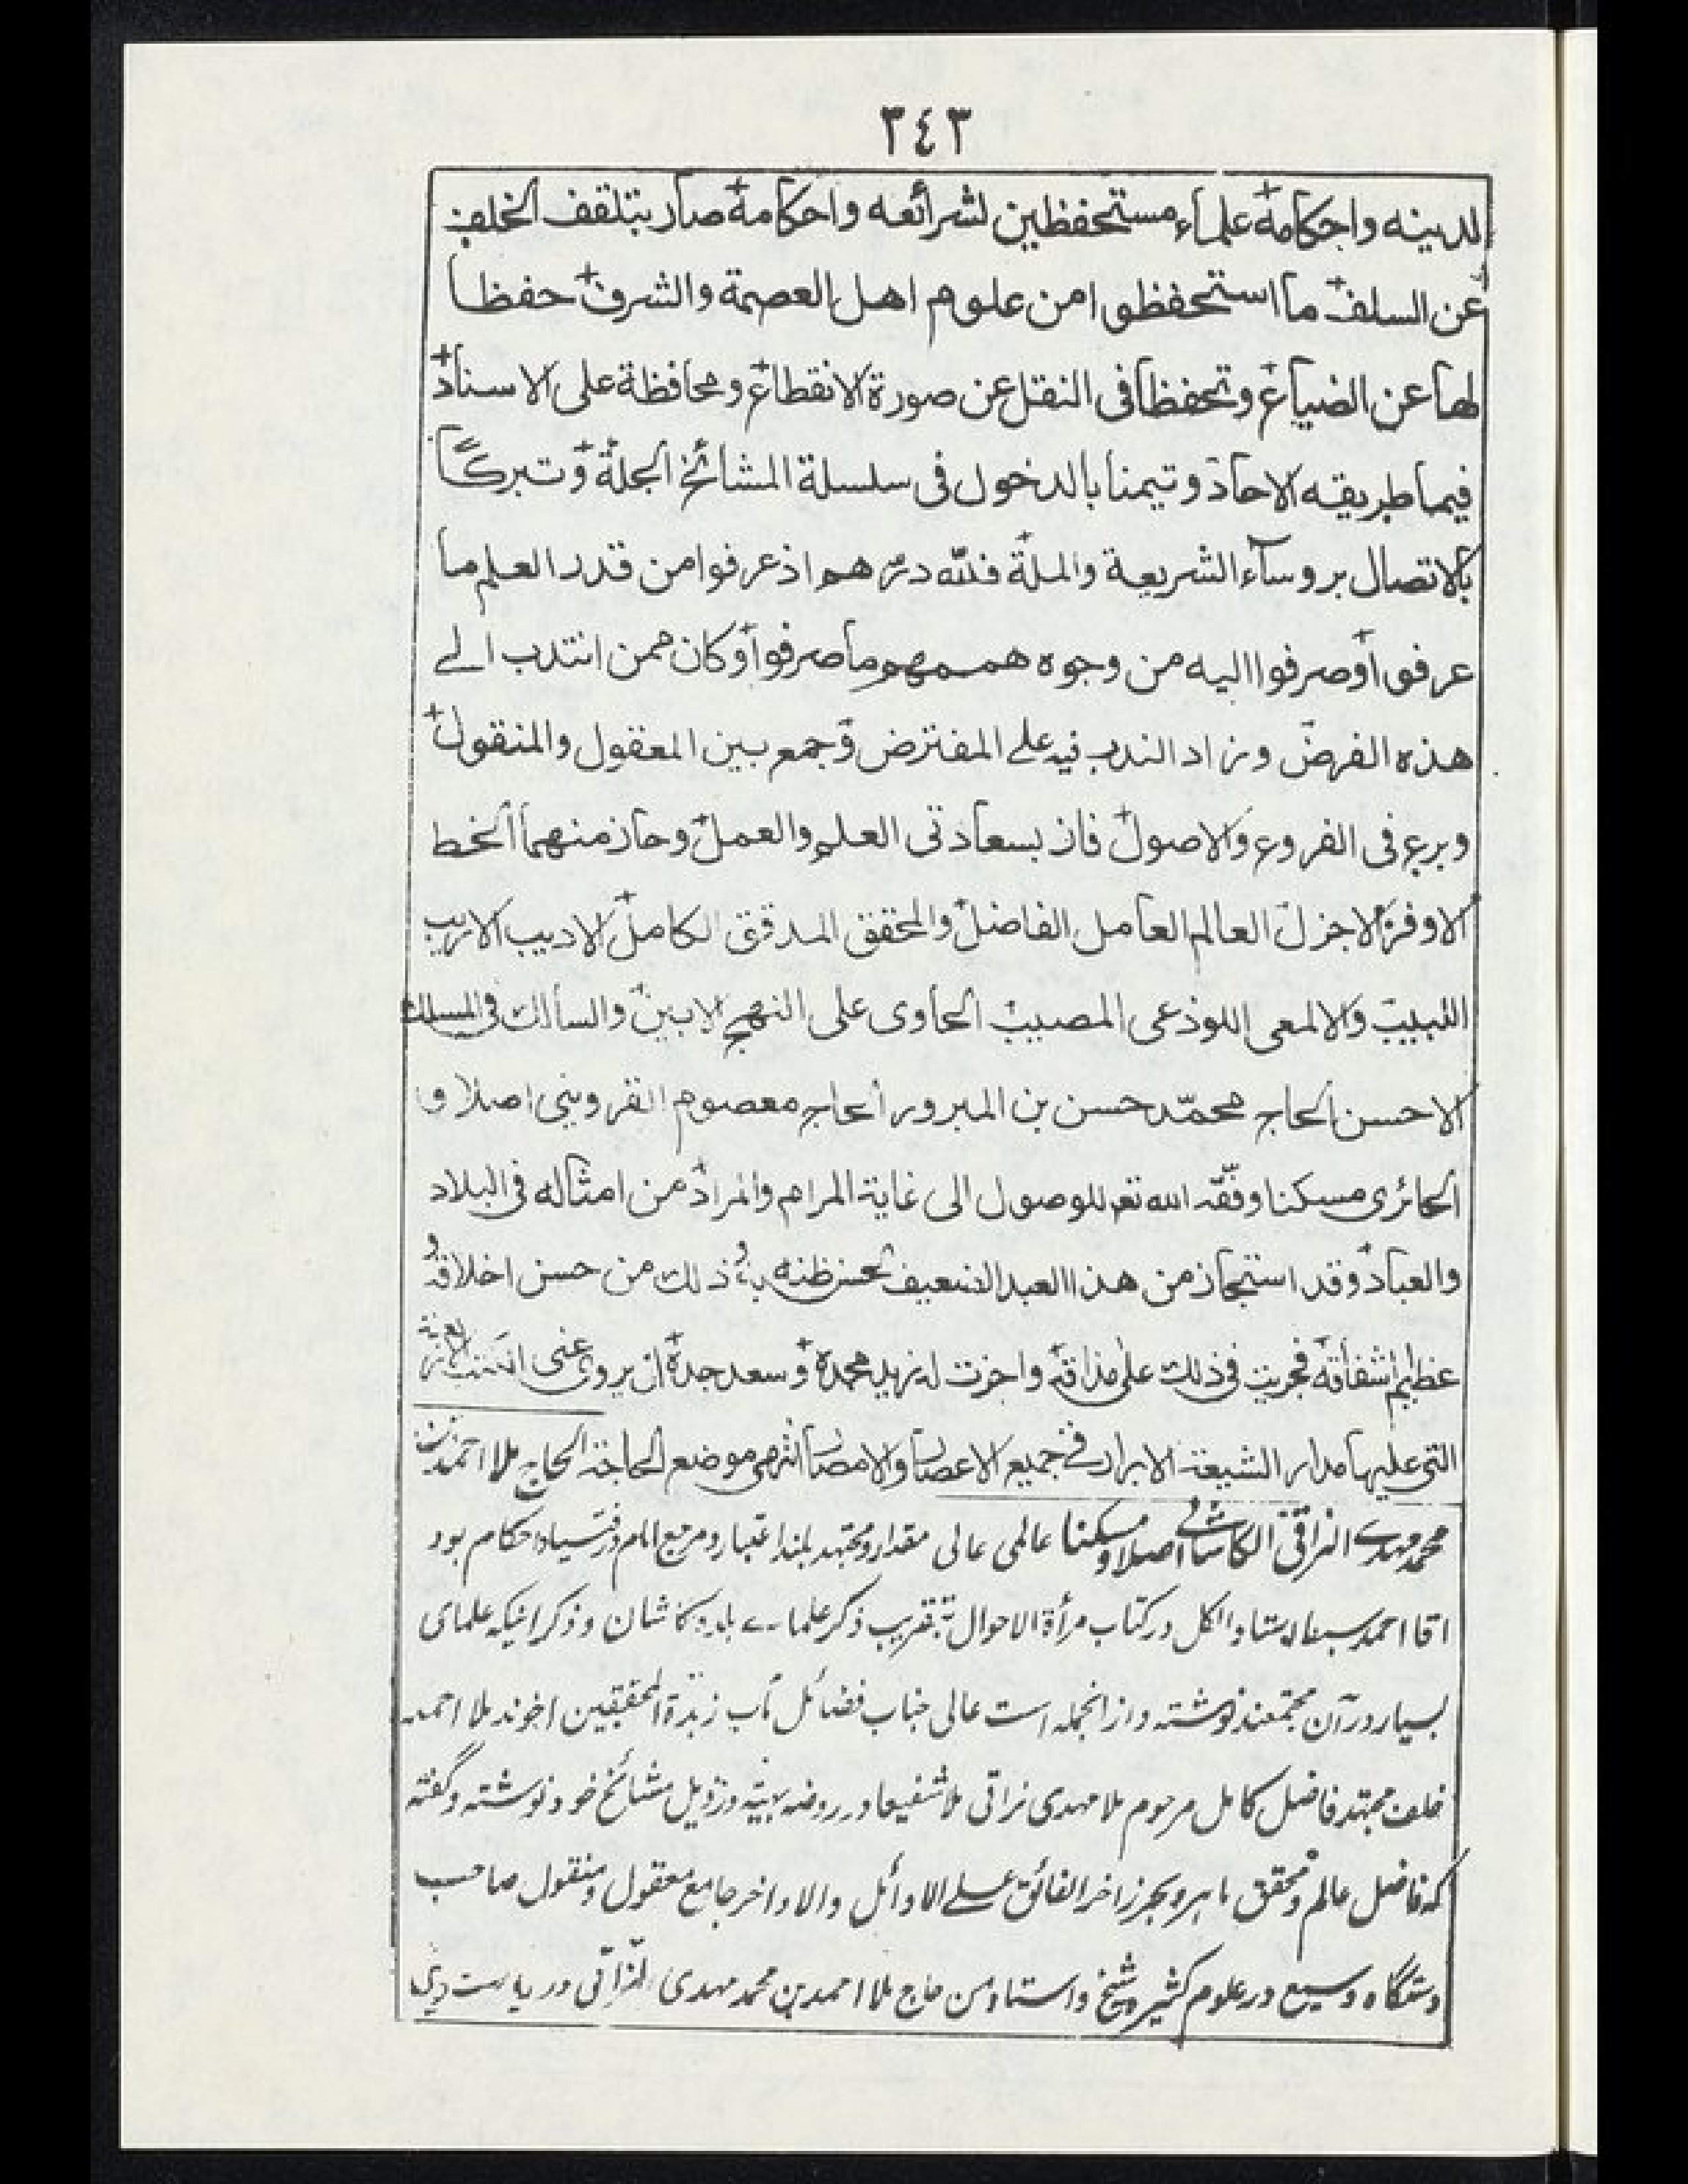 ٣٤٣
لدينه واحكامه علماء مستحفظين لشرائعه واحكامه صار يتلقف الخلف
عن السلف ما استحفظوا من علوم اهل العصمة والشرف حفظا
لها عن الضياع وتحفظا فى النقل عن صورة الانقطاع ومحافظة على الاسناد
فيما طريقه الاحاد وتيمنا بالدخول فى سلسلة المشائخ الجلة وتبركا
بالاتصال بروساء الشريعة والملة فلله درهم اذ عرفوا من قدر العلم ما
عرفوا وصرفوا اليه من وجوه هممهم ما صرفوا وكان ممن انتدب الى
هذه الفرض وزاد الندب فيه على المفترض وجمع بين المعقول والمنقول
وبرع فى الفروع والاصول فاز بسعادتى العلم والعمل وحاز منهما الخط
الاوفر الاجزل العالم العامل الفاضل والمحقق المدقق الكامل الاديب الاريب
اللبيب والالمعى اللوذعى المصيب الحاوى على النهج الابين والسالك فى المسلك
الاحسن الحاج محمد حسن بن المبرور الحاج معصوم القزوينى اصلا و
الحائرى مسكنا وفقه الله تعم للوصول الى غاية المرام والمراد من امثاله فى البلاد
والعباد وقد استجاز من هذا العبد الضعيف لحسن ظنه به وذلك من حسن اخلاقه و
عظيم اشفاقه فجريت فى ذلك على مذاقه واجزت له زيد مجده وسعد جده ان يروى عنى الكتب الاربعة
التى عليها مدار الشيعة الابرار فى جميع الاعصار والامصار انتهى موضع الحاجة الحاج ملا احمد بن
محمد مهدى النراقى الكاشانى اصلا ومسكنا عالمى عالى مقدار ومجتهد بلند اعتبار ومرجع انام در سياد احكام بود
اقا احمد سبط استاد الكل در كتاب مرأة الاحوال بتقريب ذكر علمارے بلده كاشان وذكر انيكه علماى
بسيار در آن مجتمعند نوشته واز انجمله است عالى جناب فضائل مآب زبدة المحققين اخوند ملا احمد
خلف مجتهد فاضل كامل مرحوم ملا مهدى نراقى ملا شفيعا در روضه بهيّه در ذيل مشائخ خود نوشته وگفته
كه فاضل عالم ومحقق ماهر وبحر زاخر الفائق على الاوائل والاواخر جامع معقول ومنقول صاحب
دستگاه وسيع در علوم كثير وشيخ واستاد من حاج ملا احمد بن محمد مهدى النراقى در رياست دينى